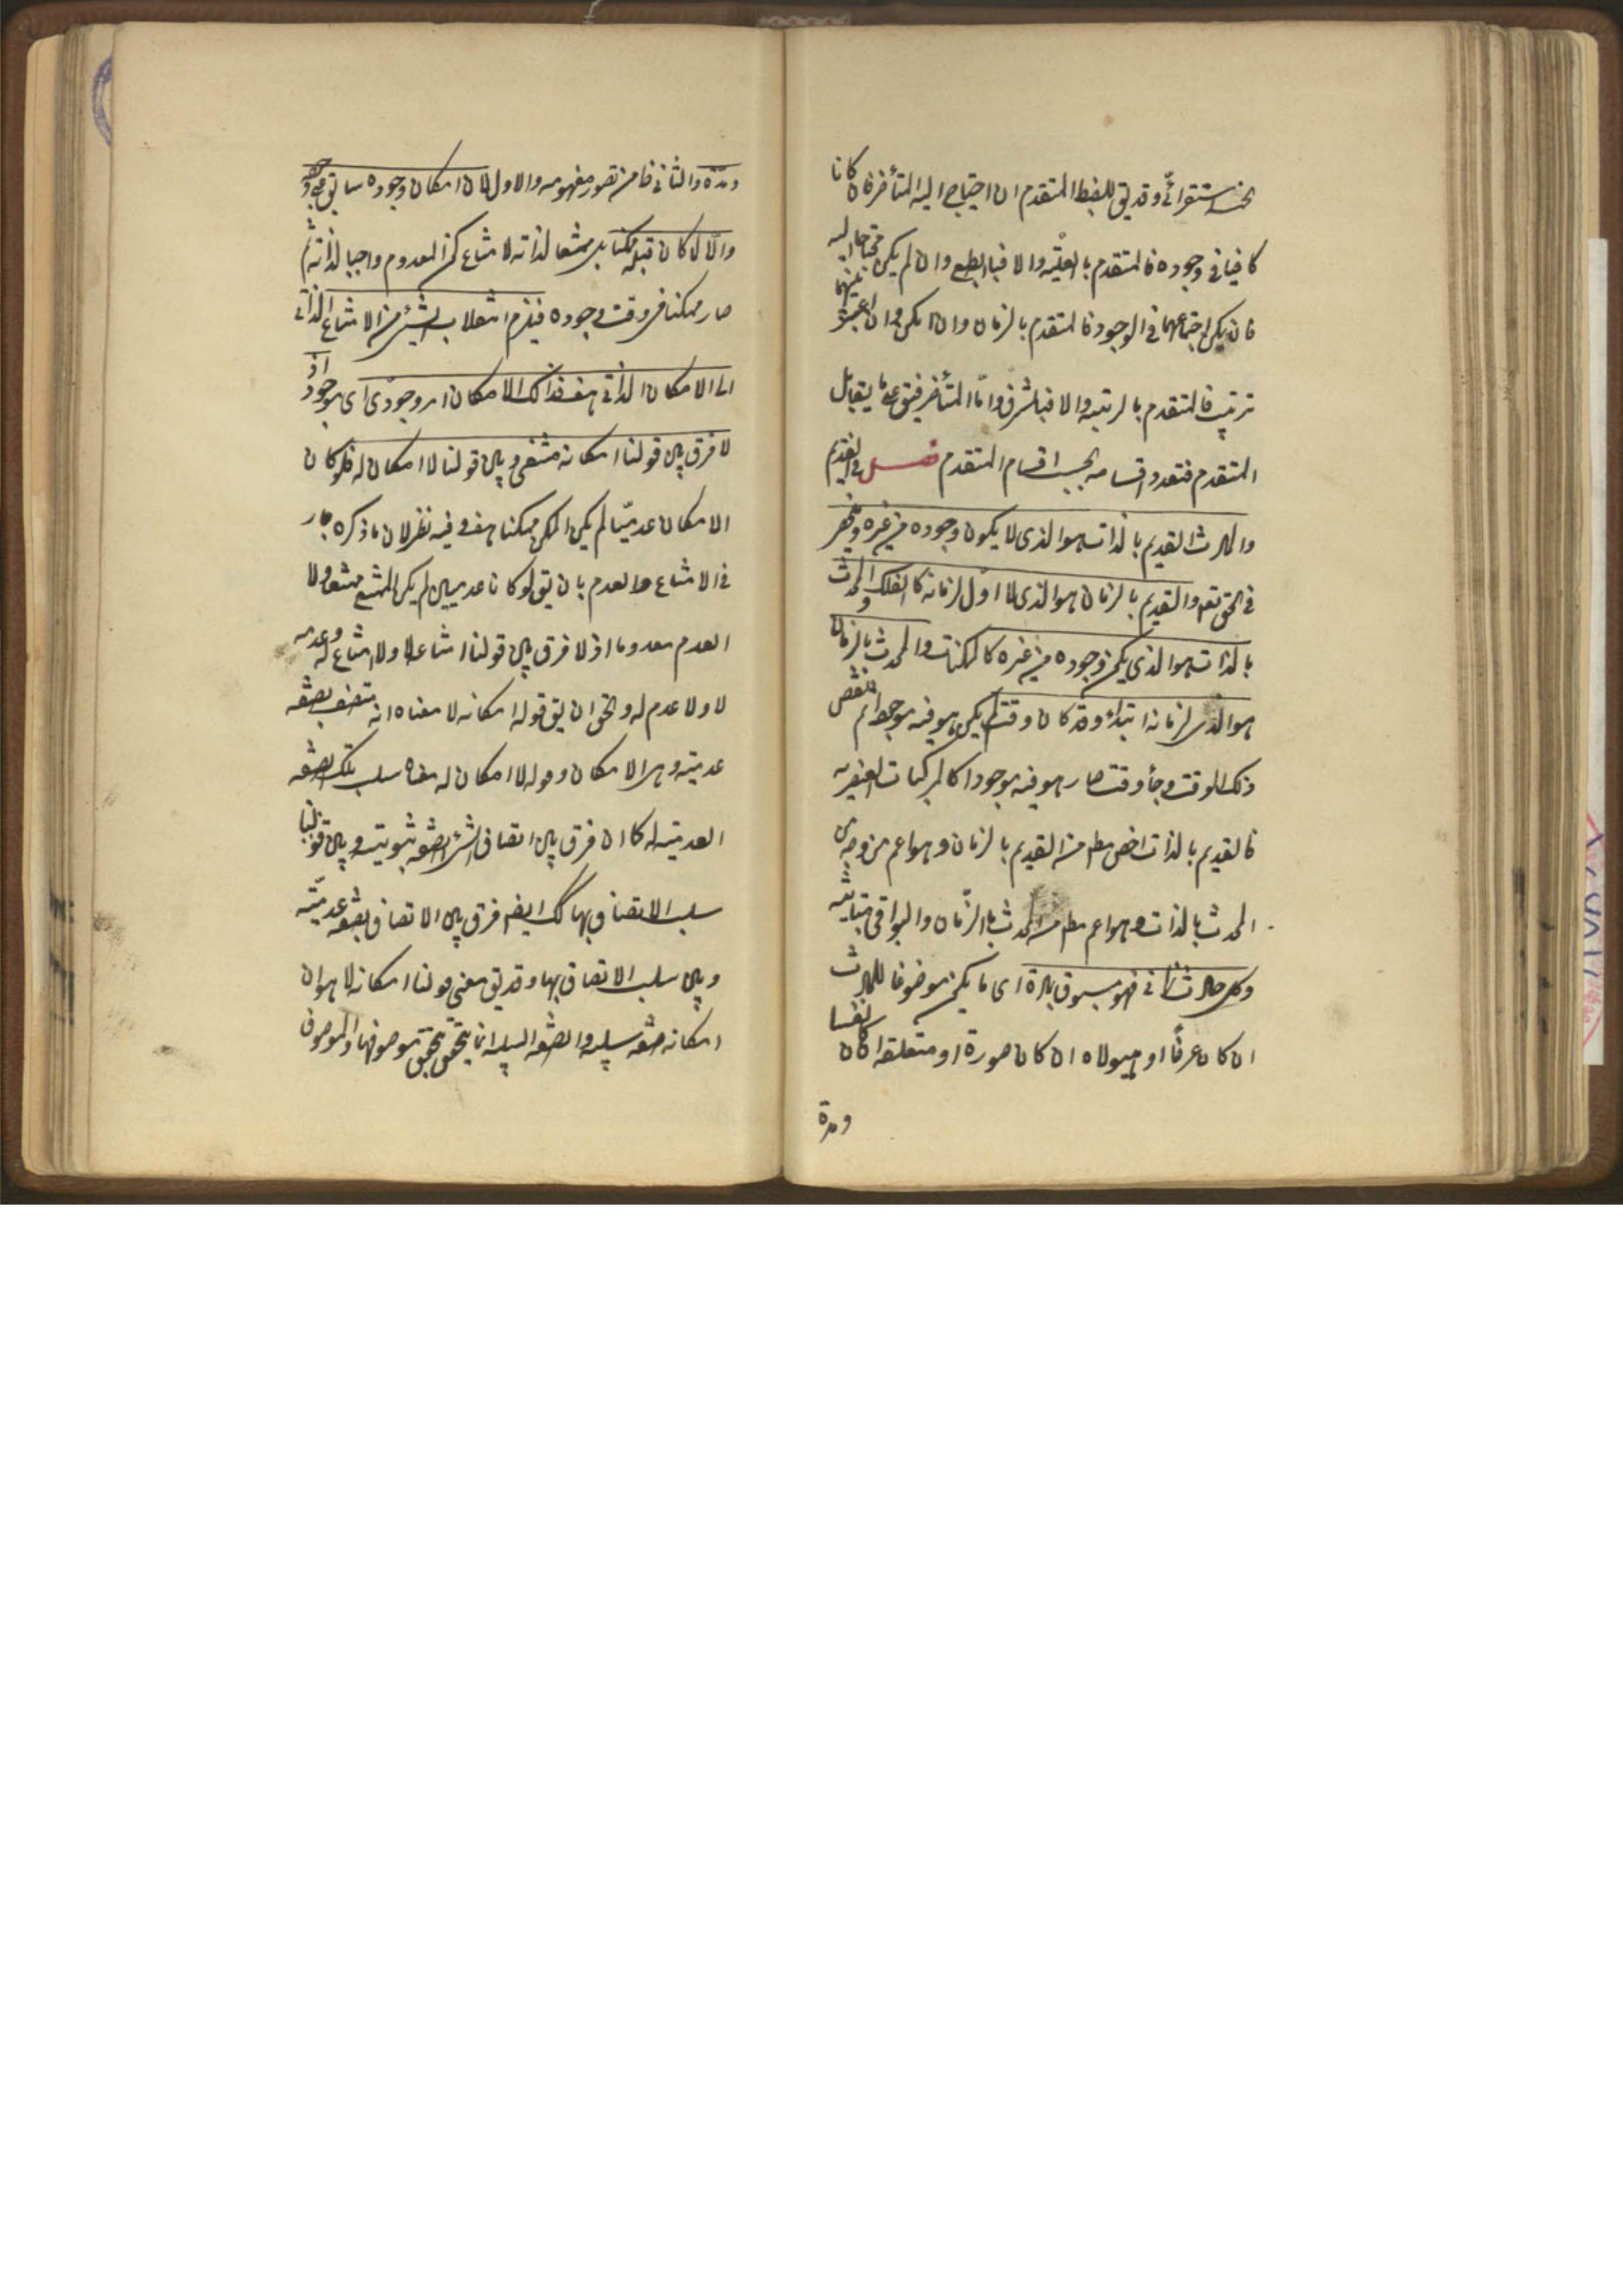 استقرائى وقد يق للضبط المتقدم ان احتاج اليه المتأخر فان كانا
كافيا فى وجوده فالمتقدم بالعليّة والا فبالطبع وان لم يكن محتاجا اليه
فان لم يكن اجتماعهما فى الوجود فالمتقدم بالزمان وان امكن فان اعتبر بينهما
ترتيب فالمتقدم بالرتبه والا فبالشرف وامّا المتأخر فيق على ما يقابل
المتقدم فتعدد اقسامه بحسب اقسام المتقدم فصل فى القديم
والحادث القديم بالذات هو الذى لا يكون وجوده من غيره وينحصر
فى الحق تعه والقديم بالزمان هو الذى لا اوّل لزمانه كالفلك والمحدث
بالذات هو الذى يكون وجوده من غيره كالممكنات والمحدث بالزمان
هو الذى لزمانه ابتداء وقد كان وقت لم يكن هو فيه موجودا ثم انقضى
ذلك الوقت وجأ وقت صار هو فيه موجودا كالمركبات العنصريه
فالقديم بالذات اخص مط من القديم بالزمان وهو اعم من وجه من
المحدث بالذات وهو اعم مط من المحدث بالزّمان والبواقى متباينه
وكل حادث زمانى فهو مسبوق بمادة اى ما يكون موضوعا للحادث
ان كان عرضًا او هيولاه ان كان صورة او متعلقه ان كان نفسا
ومدة
ومدّه والثانى ظاهر من تصور مفهومه والاول لان امكان وجوده سابق على وجوده
والّا لما كان قبله ممكنا بل ممتنعا لذاته لامتناع كون المعدوم واجبا لذاته ثم
صار ممكنا فى وقت وجوده فيلزم انقلاب الشئ من الامتناع الذاتى
الى الامكان الذاتى هف فذلك الامكان امر وجودى اى موجود اذ
لا فرق بين قولنا امكانه منتفى وبين قولنا لا امكان له فلو كان
الامكان عدميّا لم يكن الممكن ممكنا هف وفيه نظر لان ما ذكره جار
فى الامتناع والعدم بان يق لو كانا عدميين لم يكن الممتنع ممتنعا ولا
المعدوم معدوما اذ لا فرق بين قولنا امتناعه لا ولا امتناع له وعدمه
لا ولا عدم له والحق ان يق قوله امكانه لا معناه انه متصف بصفه
عدميّه وهى الامكان وقوله لا امكان له معناه سلب تلك الصفه
العدميّه له كما ان فرق بين اتصاف الشئ بصفه ثبوتيه وبين قولنا
سلب الاتصاف بها كك ايضا فرق بين الاتصاف بصفه عدميّه
وبين سلب الاتصاف بها وقد يق معنى قولنا امكانه لا هو ان
امكانه صفه سلبيه والصفه السلبيه انما يتحقق بتحقق موصوفها والموصوف